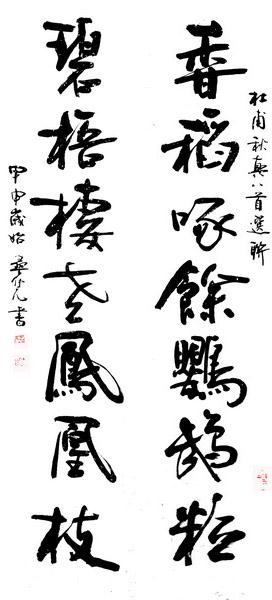 杜甫秋興八首選聯
香稻啄餘鸚鵡粒
碧梧棲老鳳凰枝
甲申歲始 書